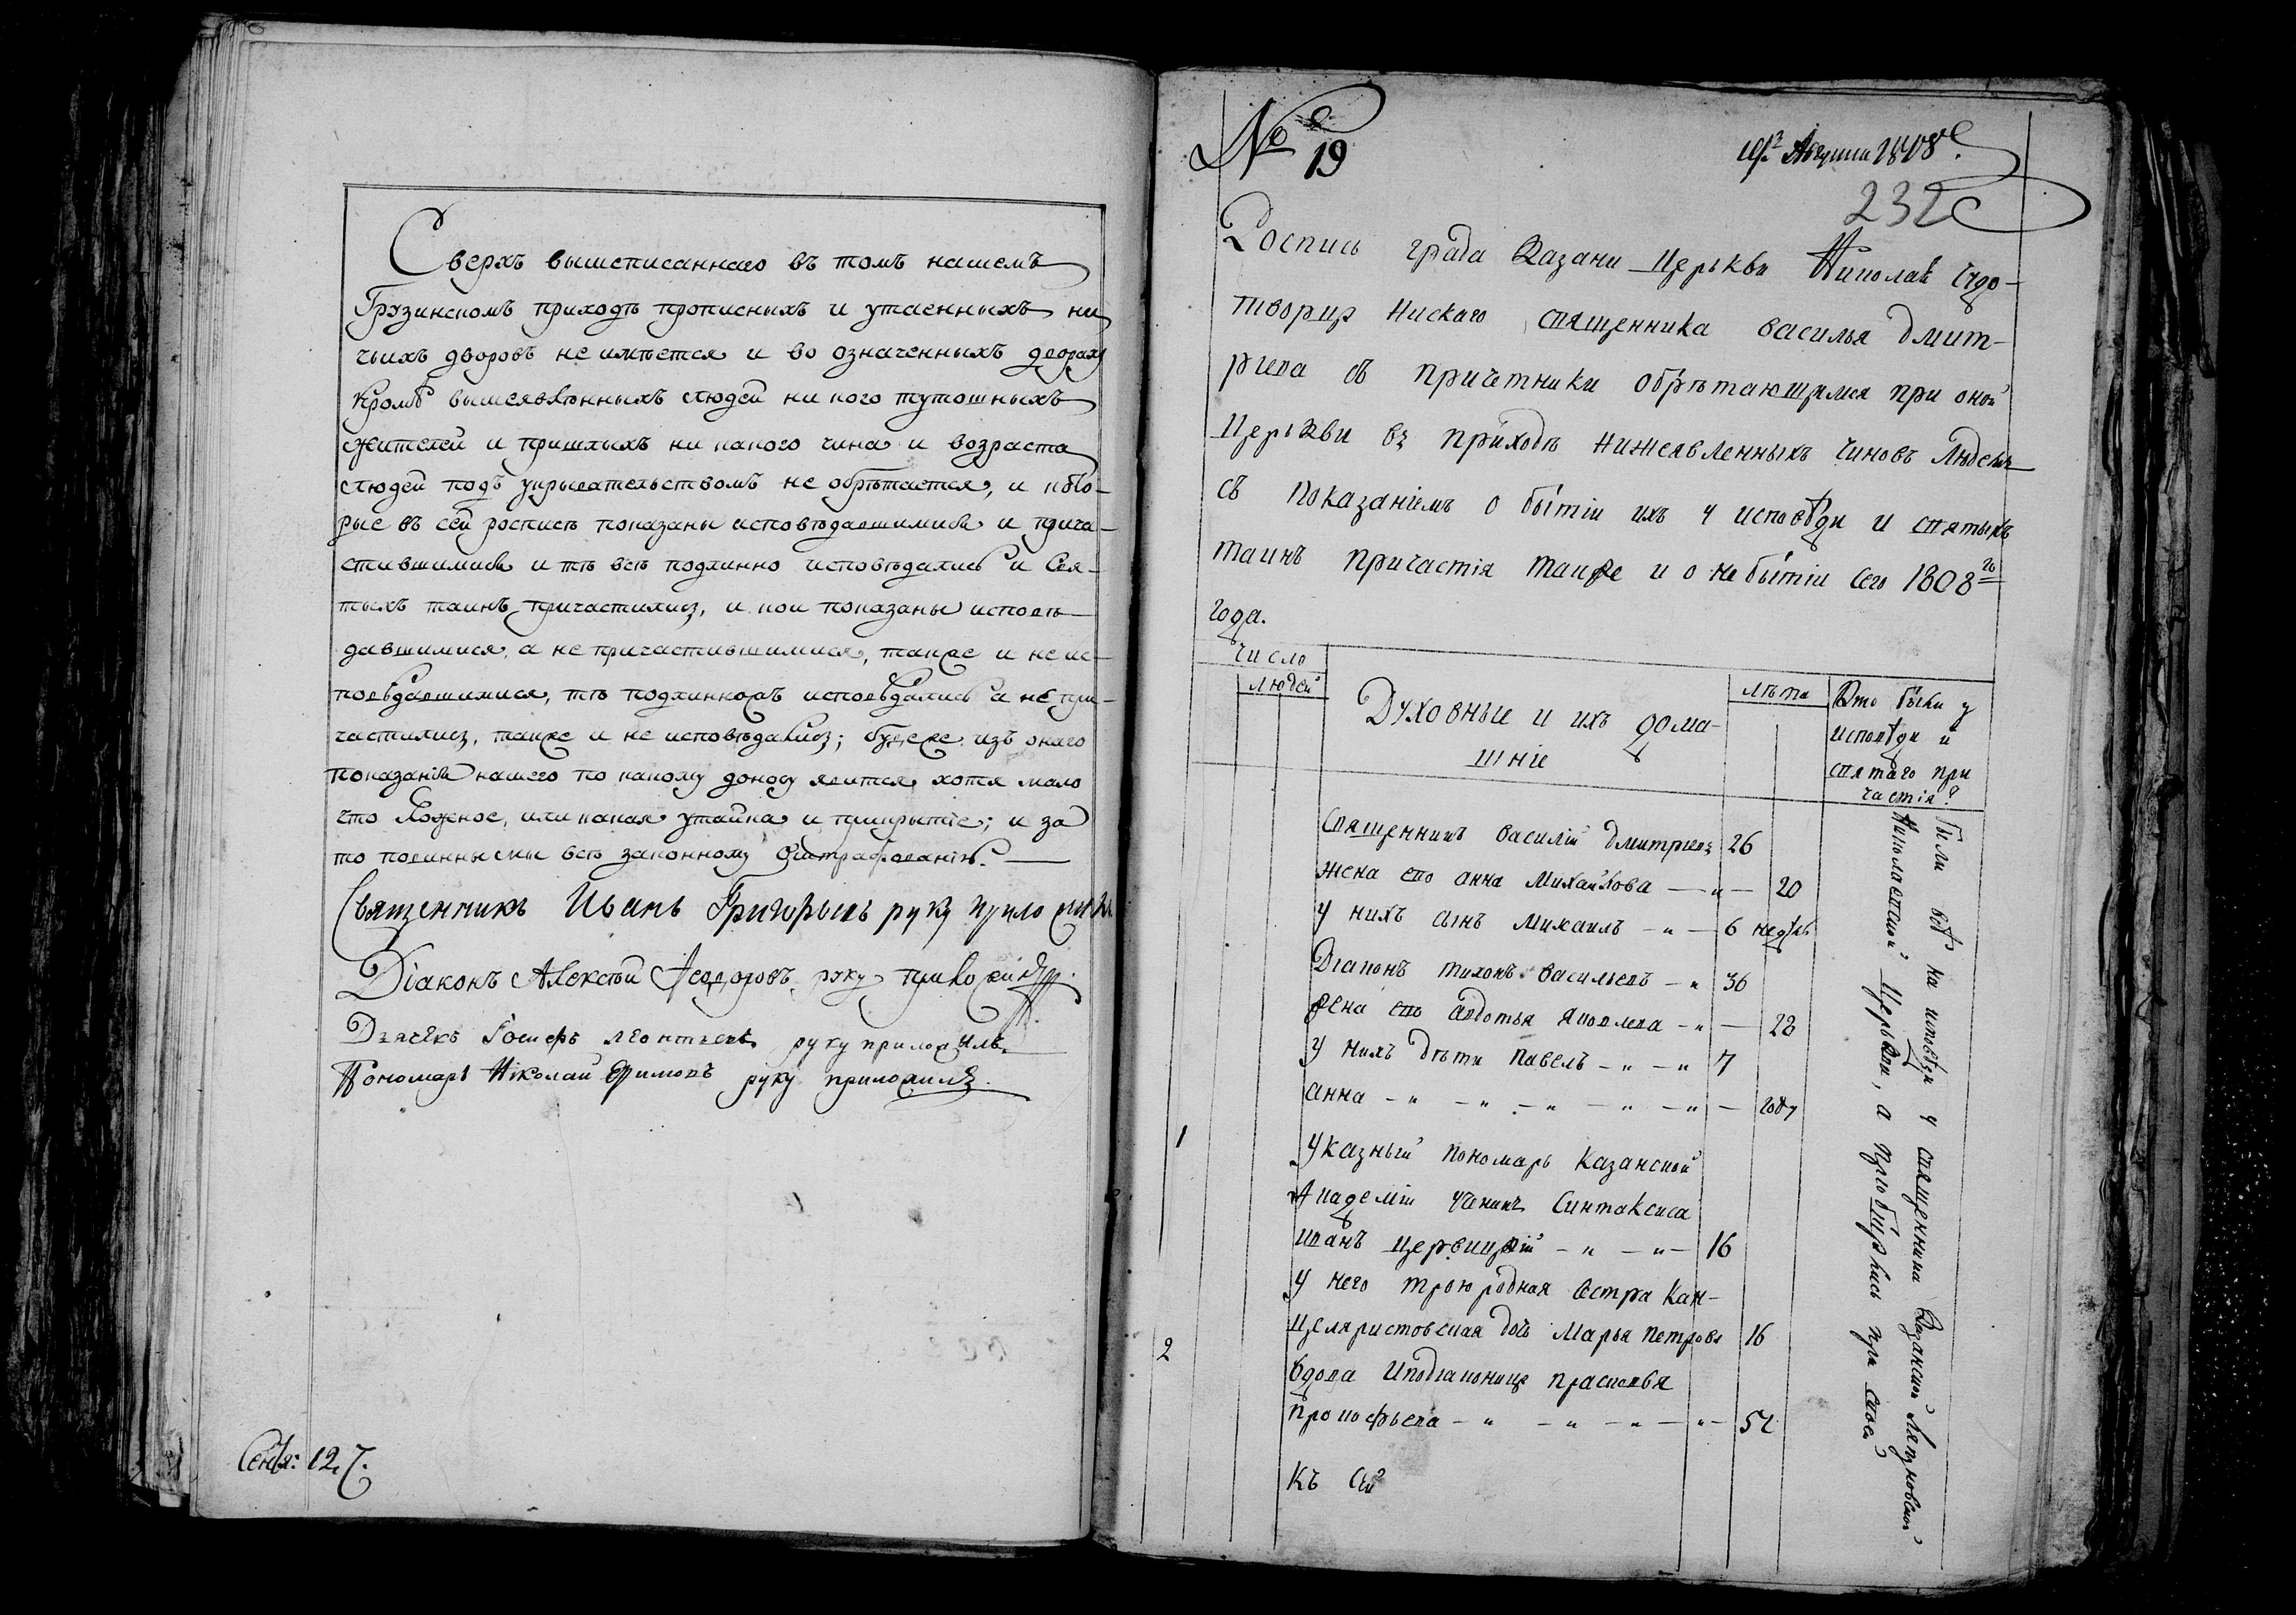 Сверхъ вышеписаннаго въ томъ нашемъ
Грузинскомъ приходѣ прописныхъ и утаенныхъ ни
чьихъ дворовъ не имѣется и во означенныхъ дворахъ
кромѣ вышеявленныхъ людей ни кого тутошныхъ
жителей и пришлыхъ ни какого чина и возраста
людей подъ укрывательствомъ не обрѣтается, и кото-
рые въ сей росписѣ показаны исповѣдавшимися и прича-
стившимися и тѣ всѣ подлинно исповѣдались и Свя-
тыхъ таинъ причастились, и кои показаны исповѣ-
давшимися, а не причастившимися, также и не ис-
повѣдавшимися, тѣ подлинножъ исповѣдались а не при-
частились, также и не исповѣдались; буде же изъ онаго
показанія нашего по какому доносу явится хотя мало
что ложное, или какая утайка и прикрытіе; и за
то повинны мы всѣ законному оштрафованію.
Священникъ Иванъ Григорьевъ руку приложилъ
Діаконъ Алексѣй Ѳеодоровъ руку приложилъ.
Дьячекъ Іосифъ Леонтьевъ руку приложилъ.
Пономарь Николай Ефимовъ руку приложилъ.
Сентя: 12. 7.
№ 19
Августа 1808
232
Роспись града Казани Церькви Николая Чудо-
творца Нискаго священника Василья Дмит-
риева съ причетники обрѣтающимся при оной
Церькви въ приходѣ нижеявленныхъ чиновъ людемъ
съ показаніемъ о бытіи ихъ у исповѣди и святыхъ
таинъ причастія также и о не бытіи сего 1808го
года.
Число
людей
Духовные и ихъ дома-
шніе
лѣта
Кто были у
исповѣди и
святаго при
частія?
Священникъ Василій Дмитриевъ 26
жена его Анна Михайлова — „ — 20
у нихъ сынъ Михаилъ — „ — 6 недѣль
Діаконъ Тихонъ Васильевъ — „ 36
жена его Авдотья Яковлева — „ — 28
у нихъ дѣти Павелъ — „ — „ 7
Анна — „ — „ — „ — „ — „ — году
1 Указный пономарь Казанской
Академіи ученикъ Синтаксиса
Иванъ — „ — „ — 16
у него троюродная сестра Кан-
целяристовская дочь Марья Петрова 16
2 вдова Иподіаконица Прасковья
Прокофьева — „ — „ — „ — „ — 52
къ сей
Были всѣ на исповѣди у священника Казанской
Николаевской Церькви, а пріобщились при своей